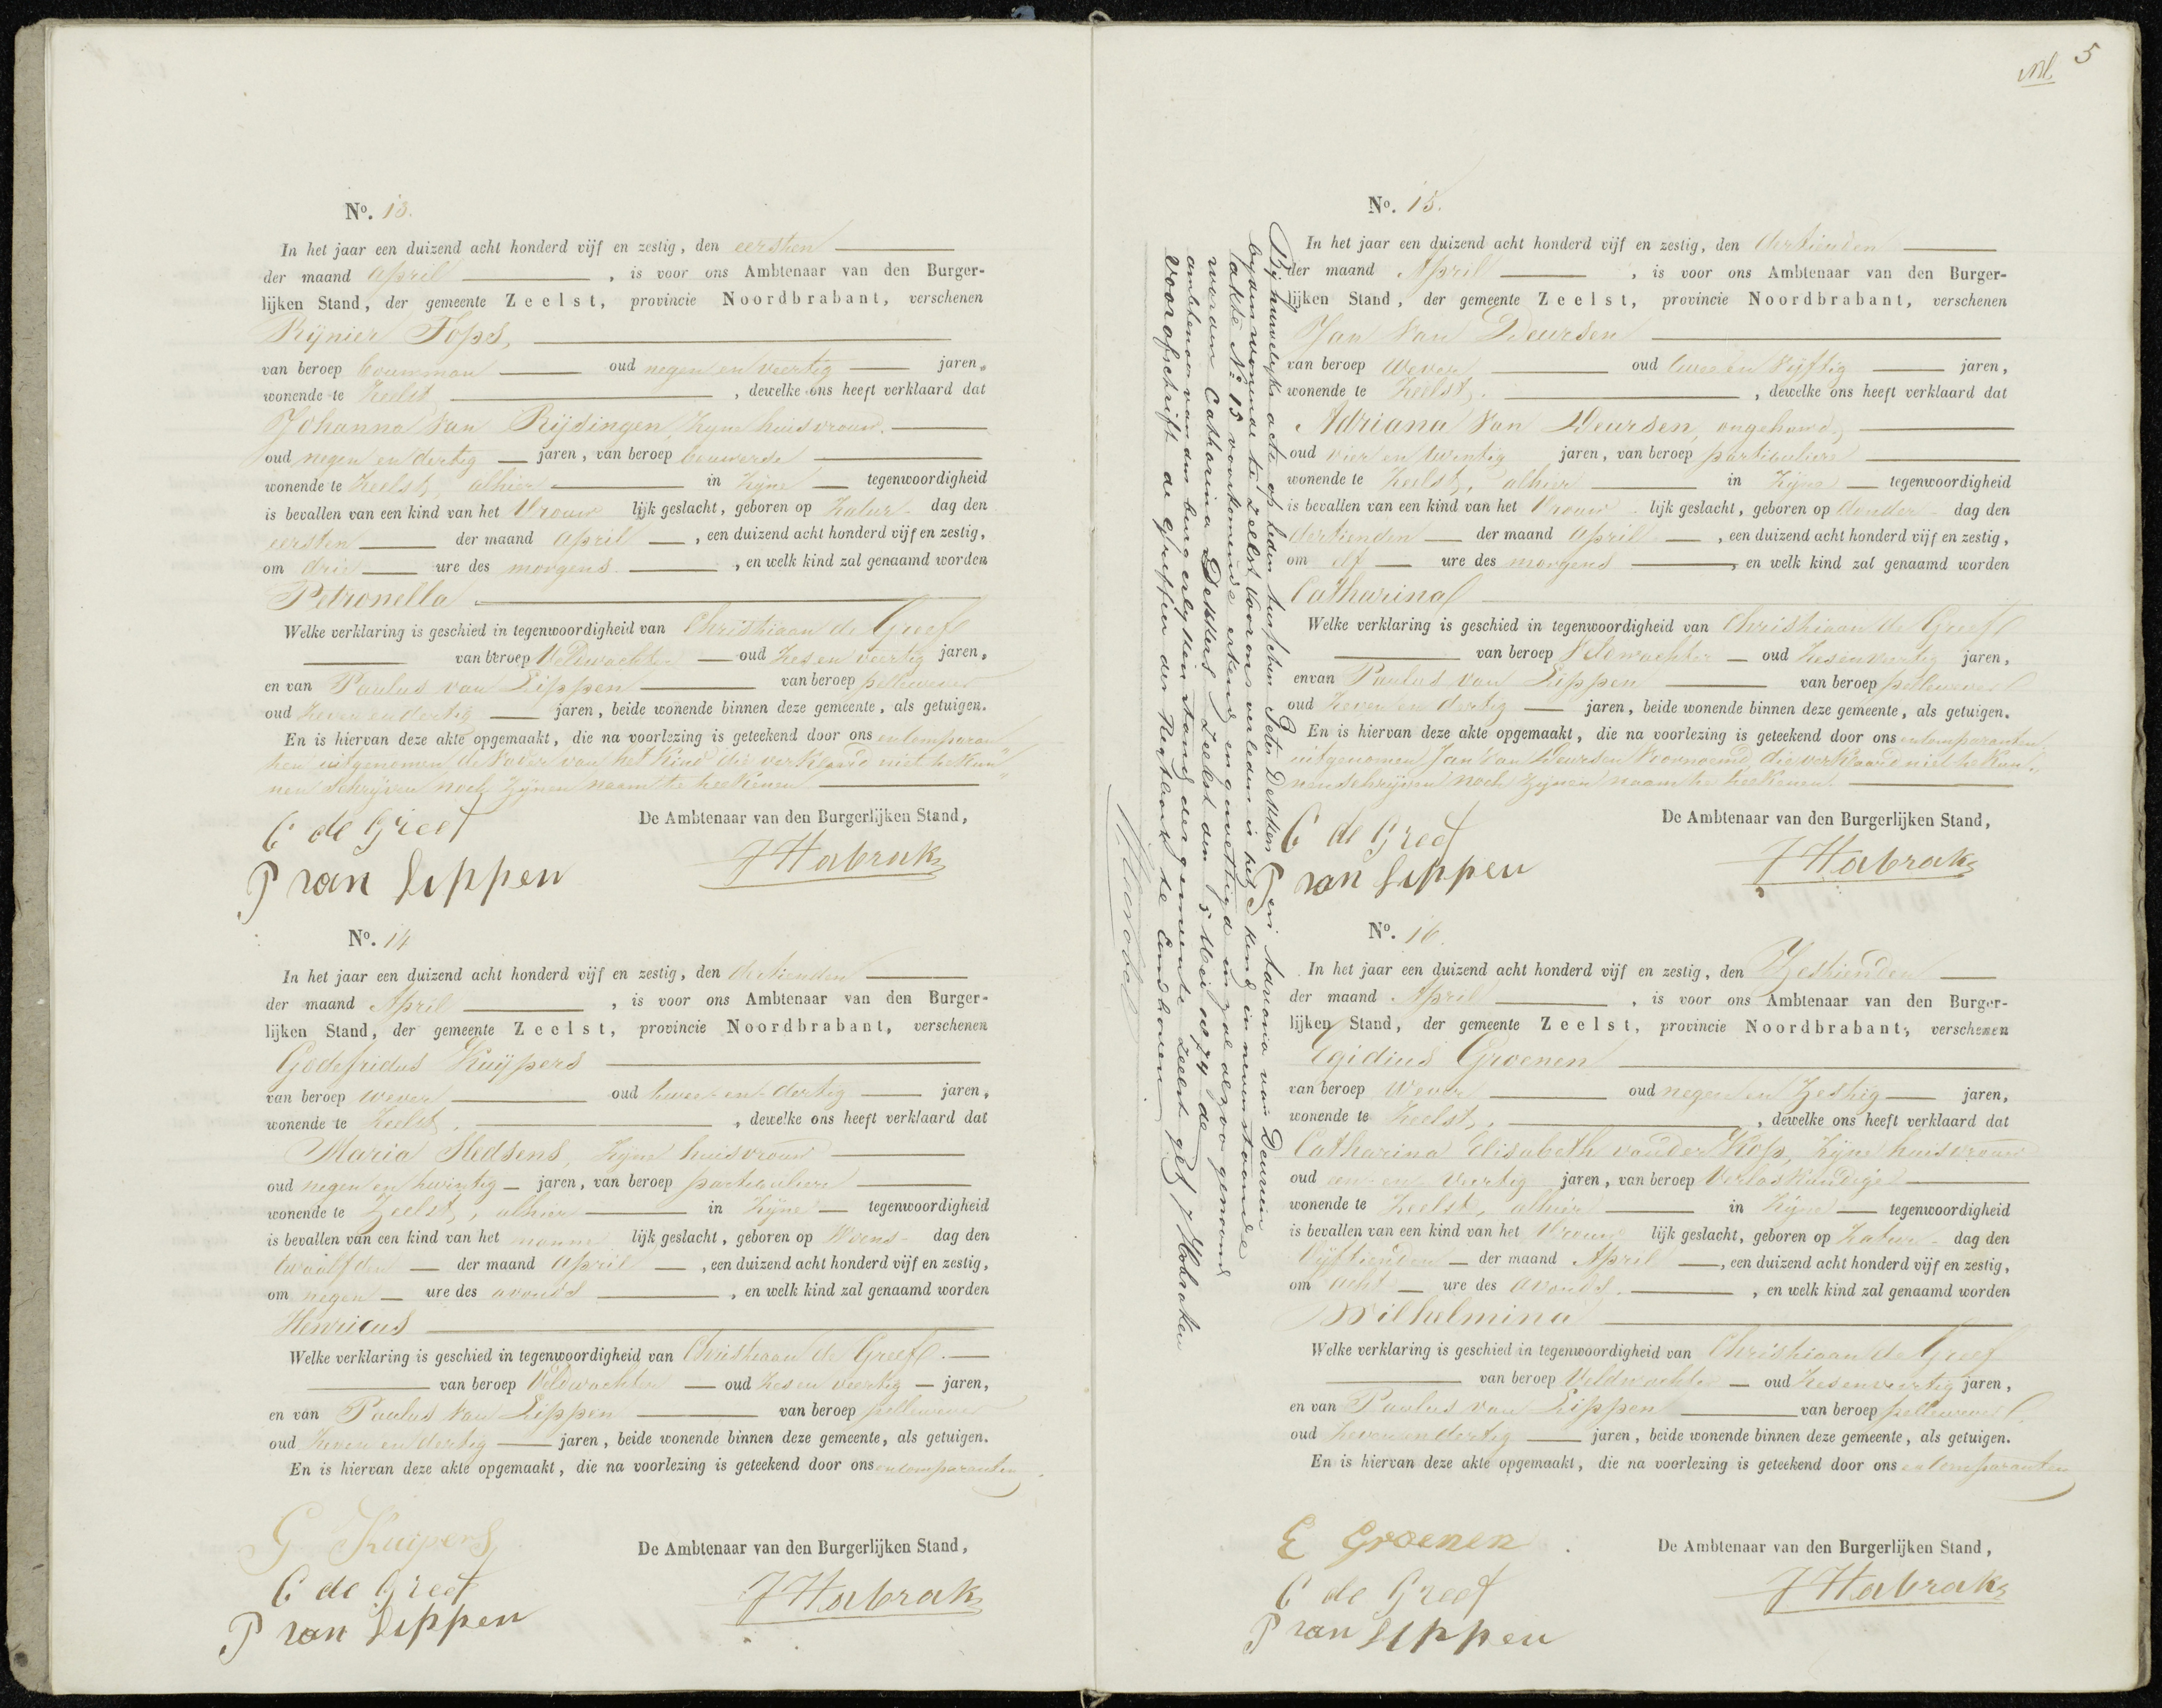 No. 13.
In het jaar een duizend acht honderd vijf en zestig, den eersten
der maand April , is voor ons Ambtenaar van den Burger-
lijken Stand, der gemeente Zeelst, provincie Noordbrabant, verschenen
Rijnier Tops,
van beroep bouwman oud negen en veertig jaren,
wonende te Zeelst , dewelke ons heeft verklaard dat
Johanna van Rijsingen, zyne huisvrouw.
oud negen en dertig jaren, van beroep bouwerse
wonende te Zeelst, alhier in zyne tegenwoordigheid
is bevallen van een kind van het Vrouw lijk geslacht, geboren op Zatur- dag den
eersten der maand April , een duizend acht honderd vijf en zestig,
om drie ure des morgens , en welk kind zal genaamd worden
Petronella
Welke verklaring is geschied in tegenwoordigheid van Christiaan de Greef
van beroep Veldwachter oud zes en veertig jaren,
en van Paulus van Lippen van beroep pellewever
oud zeven en dertig jaren, beide wonende binnen deze gemeente, als getuigen.
En is hiervan deze akte opgemaakt, die na voorlezing is geteekend door ons en Comparan-
ten uitgenomen de Vader van het Kind die verklaard niet te kun-
nen schrijven noch zynen naam te teekenen
De Ambtenaar van den Burgerlijken Stand,
C de Greef
J Habrak
P van Lippen
No. 14
In het jaar een duizend acht honderd vijf en zestig, den dertienden
der maand April , is voor ons Ambtenaar van den Burger-
lijken Stand, der gemeente Zeelst, provincie Noordbrabant, verschenen
Godefridus Kuijpers
van beroep wever oud twee-en-dertig jaren,
wonende te Zeelst, , dewelke ons heeft verklaard dat
Maria zyne huisvrouw
oud negen en twintig jaren, van beroep particuliere
wonende te Zeelst, alhier in zyne tegenwoordigheid
is bevallen van een kind van het manne lijk geslacht, geboren op Woens- dag den
twaalfden der maand April , een duizend acht honderd vijf en zestig,
om negen ure des avonds , en welk kind zal genaamd worden
Henricus
Welke verklaring is geschied in tegenwoordigheid van Christiaan de Greef.
van beroep Veldwachter oud zes en veertig jaren,
en van Paulus van Lippen van beroep pellewever
oud zeven en dertig jaren, beide wonende binnen deze gemeente, als getuigen.
En is hiervan deze akte opgemaakt, die na voorlezing is geteekend door ons en Comparanten
G Kuipers
De Ambtenaar van den Burgerlijken Stand,
C de Greef
J Habrak
P van Lippen
5
No. 15.
In het jaar een duizend acht honderd vijf en zestig, den dertienden
der maand April , is voor ons Ambtenaar van den Burger-
lijken Stand, der gemeente Zeelst, provincie Noordbrabant, verschenen
Jan van Deursen
van beroep wever oud twee en vijftig jaren,
wonende te Zeelst, , dewelke ons heeft verklaard dat
Adriana van Deursen, ongehuwd,
oud vier en twintig jaren, van beroep particuliere
wonende te Zeelst, alhier in zyne tegenwoordigheid
is bevallen van een kind van het Vrouw lijk geslacht, geboren op donder- dag den
dertienden der maand April , een duizend acht honderd vijf en zestig,
om elf ure des morgens , en welk kind zal genaamd worden
Catharina
Welke verklaring is geschied in tegenwoordigheid van Christiaan de Greef
van beroep Veldwachter oud zes en veertig jaren,
en van Paulus van Lippen van beroep pellewever
oud zeven en dertig jaren, beide wonende binnen deze gemeente, als getuigen.
En is hiervan deze akte opgemaakt, die na voorlezing is geteekend door ons en Comparanten
uitgenomen Jan van Deursen voornoemd, die verklaard niet te kun-
nen schrijven noch zynen naam te teekenen
De Ambtenaar van den Burgerlijken Stand,
C de Greef
J Habrak
P van Lippen
Bij huwelijks acte op heden tusschen Peter Dekkers en Adriana van Deursen
beyden wonende te Zeelst voorens verleden is het kind in nevenstaande
akte No. 15 voorkomende erkend en gewettigd en zal alzoo genaamd
worden Catharina Dekkers Zeelst den 5 Mei 1874 de
ambtenaar van den burgerlyken stand der gemeente Zeelst get J Habraken
voor afschrift de griffier der Regtbank te Eindhoven
No. 16.
In het jaar een duizend acht honderd vijf en zestig, den Zestienden
der maand April , is voor ons Ambtenaar van den Burger-
lijken Stand, der gemeente Zeelst, provincie Noordbrabant, verschenen
Egidius Groenen
van beroep wever oud negen en zestig jaren,
wonende te Zeelst, , dewelke ons heeft verklaard dat
Catharina Elisabeth van der Kop, zyne huisvrouw
oud een en veertig jaren, van beroep Verloskundige
wonende te Zeelst, alhier in zyne tegenwoordigheid
is bevallen van een kind van het Vrouw lijk geslacht, geboren op Zatur- dag den
vijftienden der maand April , een duizend acht honderd vijf en zestig,
om acht ure des avonds , en welk kind zal genaamd worden
Wilhelmina
Welke verklaring is geschied in tegenwoordigheid van Christiaan de Greef
van beroep Veldwachter oud zes en veertig jaren,
en van Paulus van Lippen van beroep pellewever
oud zeven en dertig jaren, beide wonende binnen deze gemeente, als getuigen.
En is hiervan deze akte opgemaakt, die na voorlezing is geteekend door ons en Comparanten
E Groenen
De Ambtenaar van den Burgerlijken Stand,
C de Greef
J Habrak
P van Lippen